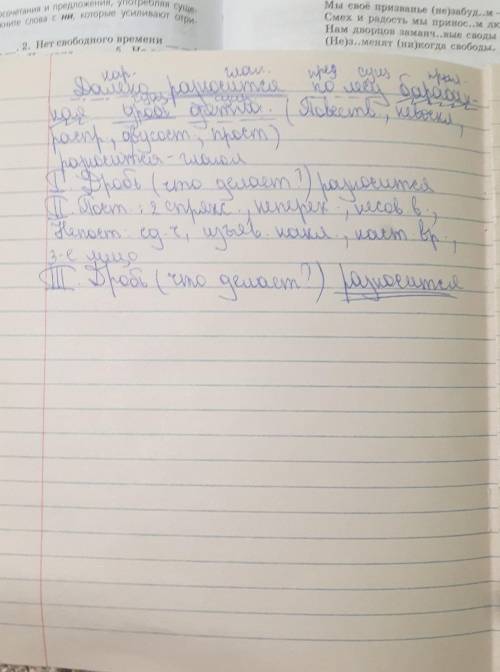 сочетания и предложения, употребляя суще-
ните слова с ни, которые усиливают отри-
2. Нет свободного времени
Мы своё призванье (не)забуд..м –
Смех и радость мы принос..м лю
Нам дворцов заманч..вые своды
(Не)з..менят (ни)когда свободы.
нар. глаг. пред сущ прил.
Далеко разносится по лесу барабан-
сущ сущ
ная дробь дятла. (Повеств., невоскл,
распр, двусост, прост)
разносится - глагол
I. Дробь (что делает?) разносится
II. Пост: 2 спряж., неперех., несов в.,
Непост: ед. ч, изъяв. накл., наст вр.,
3-е лицо
III. Дробь (что делает?) разносится